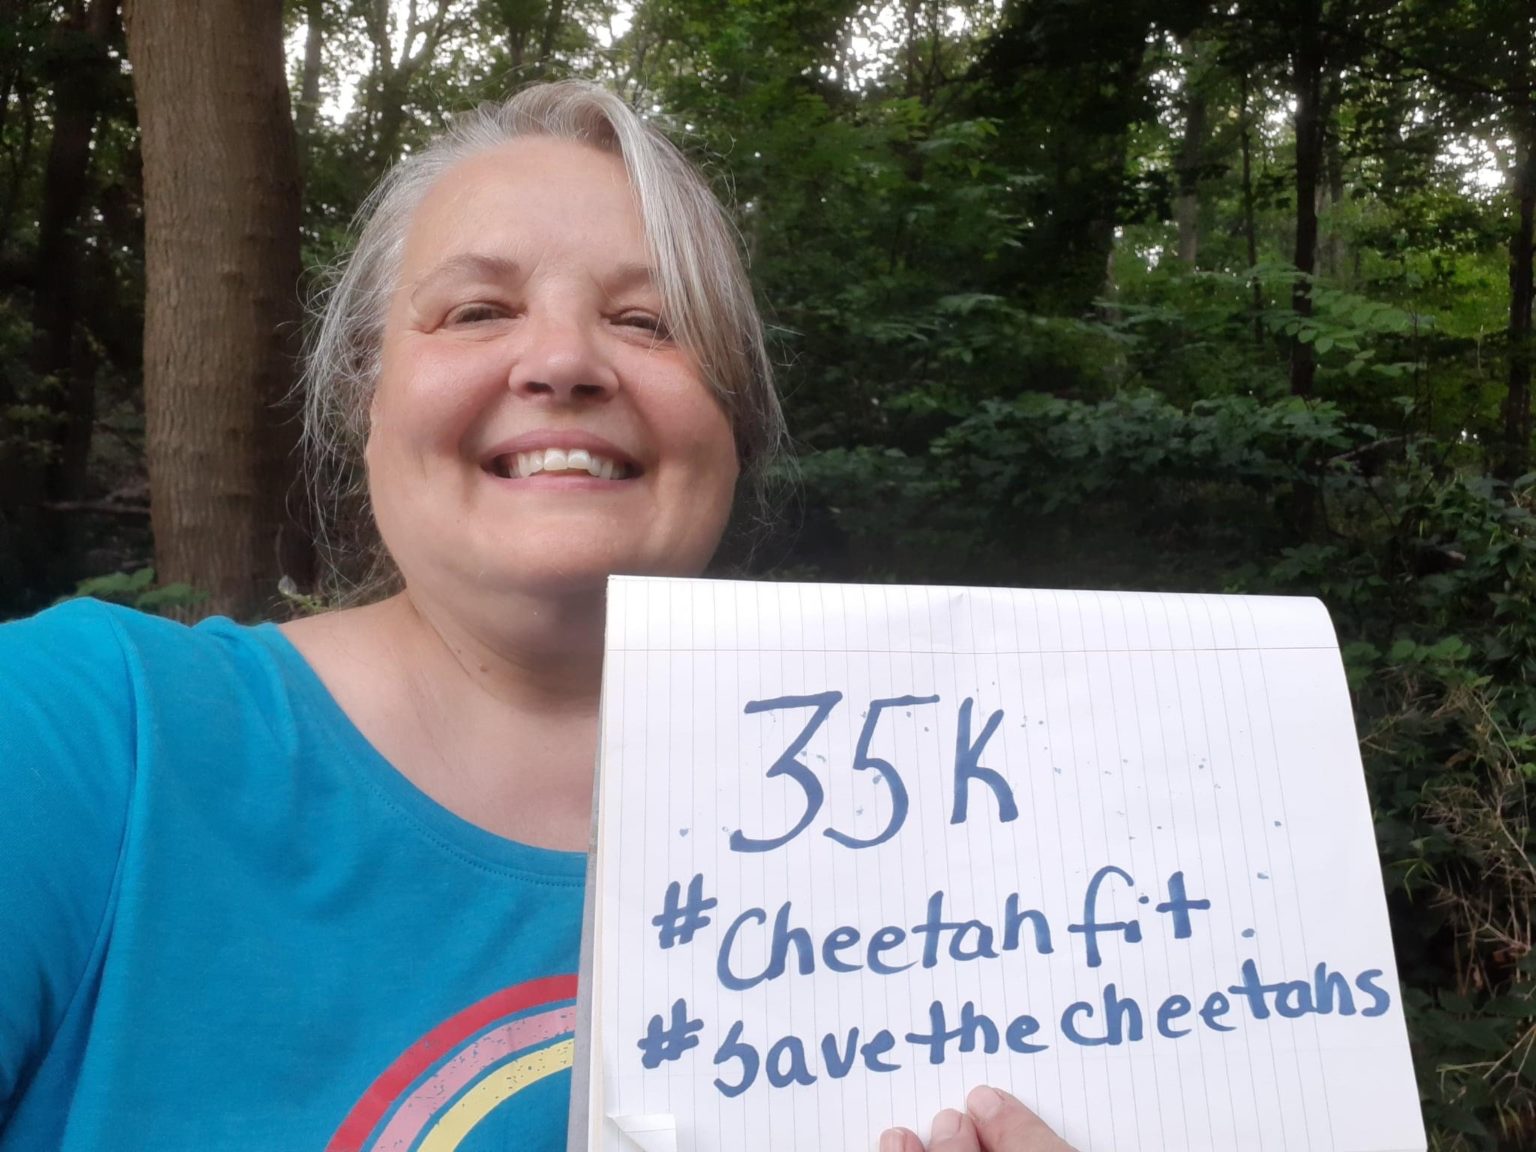 35K
#Cheetahfit
#Savethecheetahs